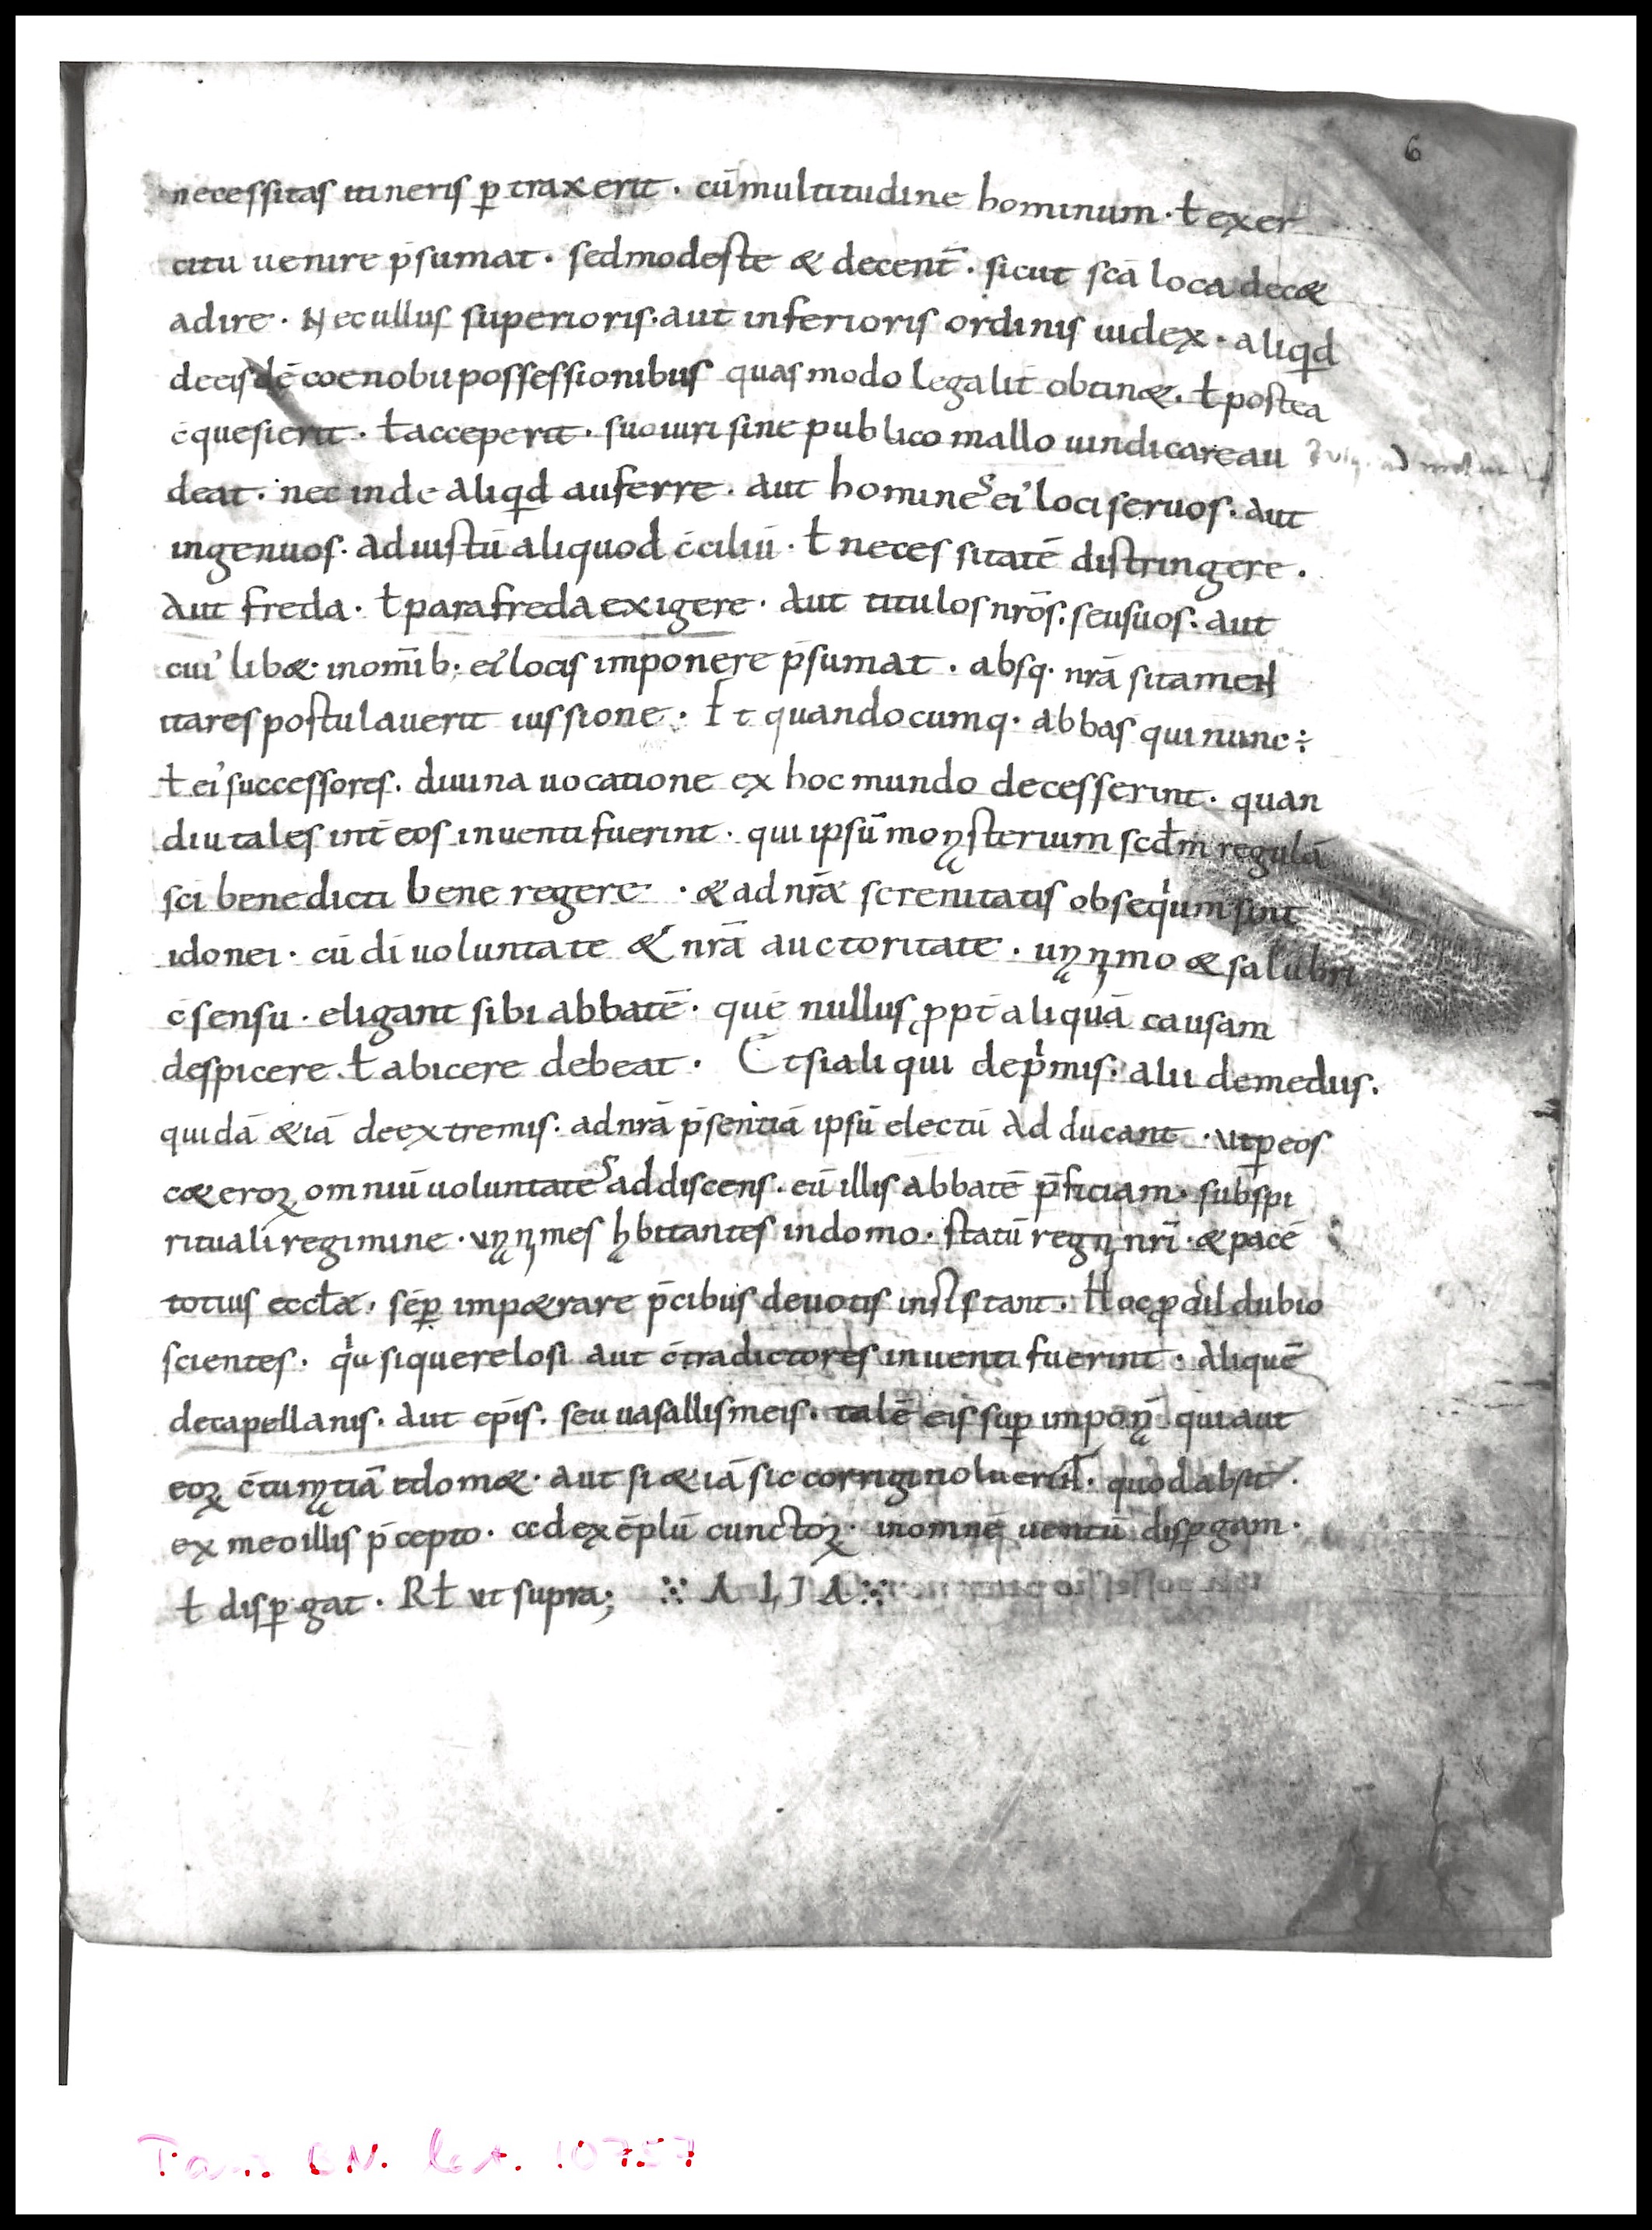 6
necessitas itineris ꝑ traxerit · cū multitudine hominum · ł exer
citu uenire p̄sumat · sed modeste & decent̄ · sicut scā loca dec&
adire · Nec ullus superioris · aut inferioris ordinis iudex · aliqd
de eisdē coenobii possessionibus quas modo legalit̄ obtin& · ł postea
c̄quesierit · ł acceperit · suo iuri sine publico mallo uindicare au
deat · nec inde aliqd auferre · aut homineˢ ei' loci seruos · aut
ingenuos · ad iustū aliquod c̄ciliū · ł necessitatē distringere ·
aut freda · ł parafreda exigere · aut titulos nrōs · seu suos · aut
cui' lib& · in om̄ib; ei' locis imponere p̄sumat · absq · nrā si tamen
ita res postulauerit iussione · Et quandocumq · abbas qui nunc ÷
ł ei' successores · diuina uocatione ex hoc mundo decesserint · quan
diu tales int̄ eos inuenti fuerint · qui ipsū monąsterium scd̄m regulā
sci benedicti bene regere · & ad nrāe serenitatis obseqͥum sint
idonei · cū di uoluntate & nrā auctoritate · unąnmo & salubri
c̄sensu · eligant sibi abbatē · quē nullus ꝓpt̄ aliquā causam
despicere · ł abicere debeat · Et si aliqui de pͥmis · alii de mediis ·
quidā &iā de extremis · ad nrā p̄sentiā ipsū electū adducant · ut ꝑ eos
c&eroꝝ omniū uoluntateˢ addiscens · eū illis abbatē p̄ficiam · sub spi
rituali regimine · unąnmes hąbitantes in domo · statū regni nrī · & pacē
totius eccłae · sēꝑ imp&rare p̄cibus deuotis insistant · Hoc ꝓcͥil dubio
scientes · qͥa si querelosi aut c̄tradictores inuenti fuerint · aliquē
de capellanis · aut ep̄is · seu uasallis meis · talē eis suꝑ imponą qui aut
eoꝝ c̄tumątiā edom& · aut si &iā sic corrigi noluerint · quod absit ·
ex meo illis p̄cepto · ad exēplū cunctoꝝ · in omnē uentū disꝑgam ·
ł disꝑgat · Rł ut supra; ALIA
Paris BN. lat. 10757